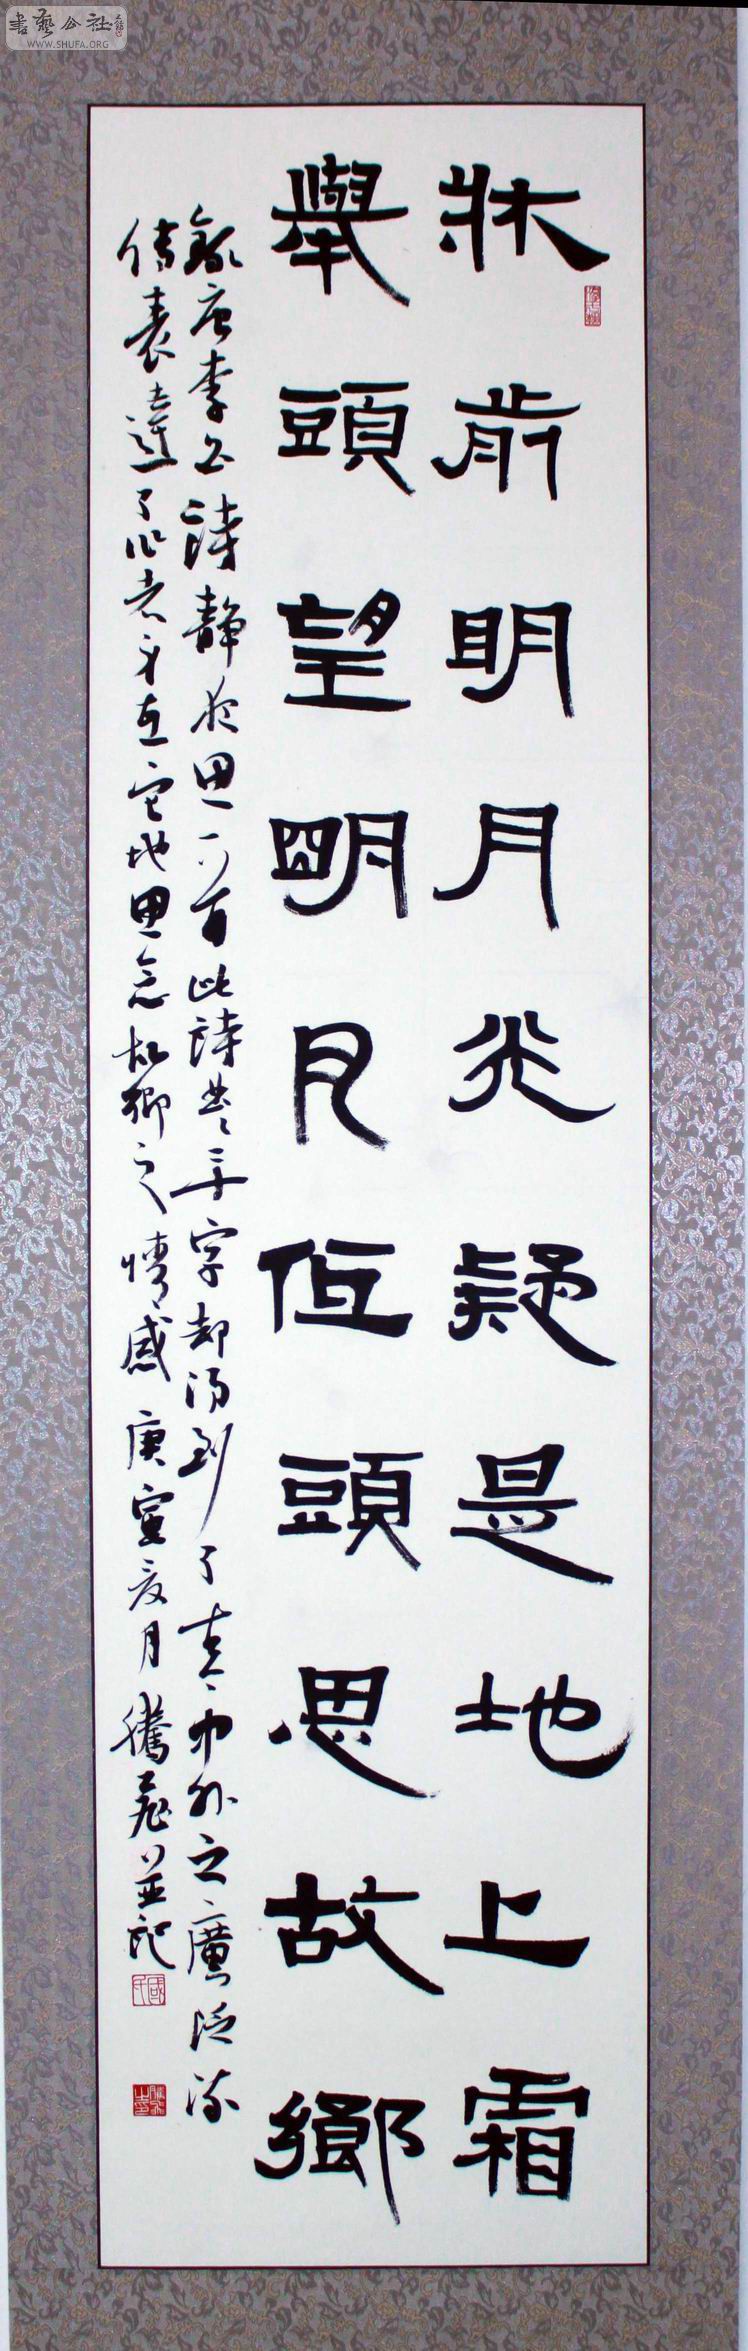 書藝公社
WWW.SHUFA.ORG
牀前明月光疑是地上霜
舉頭望明月低頭思故鄉
錄唐李白詩靜夜思一首此詩共二十字却得到了古今中外之廣泛流
傳表達了作者身在它地思念故鄉之情感 庚寅夏月騰飛並記